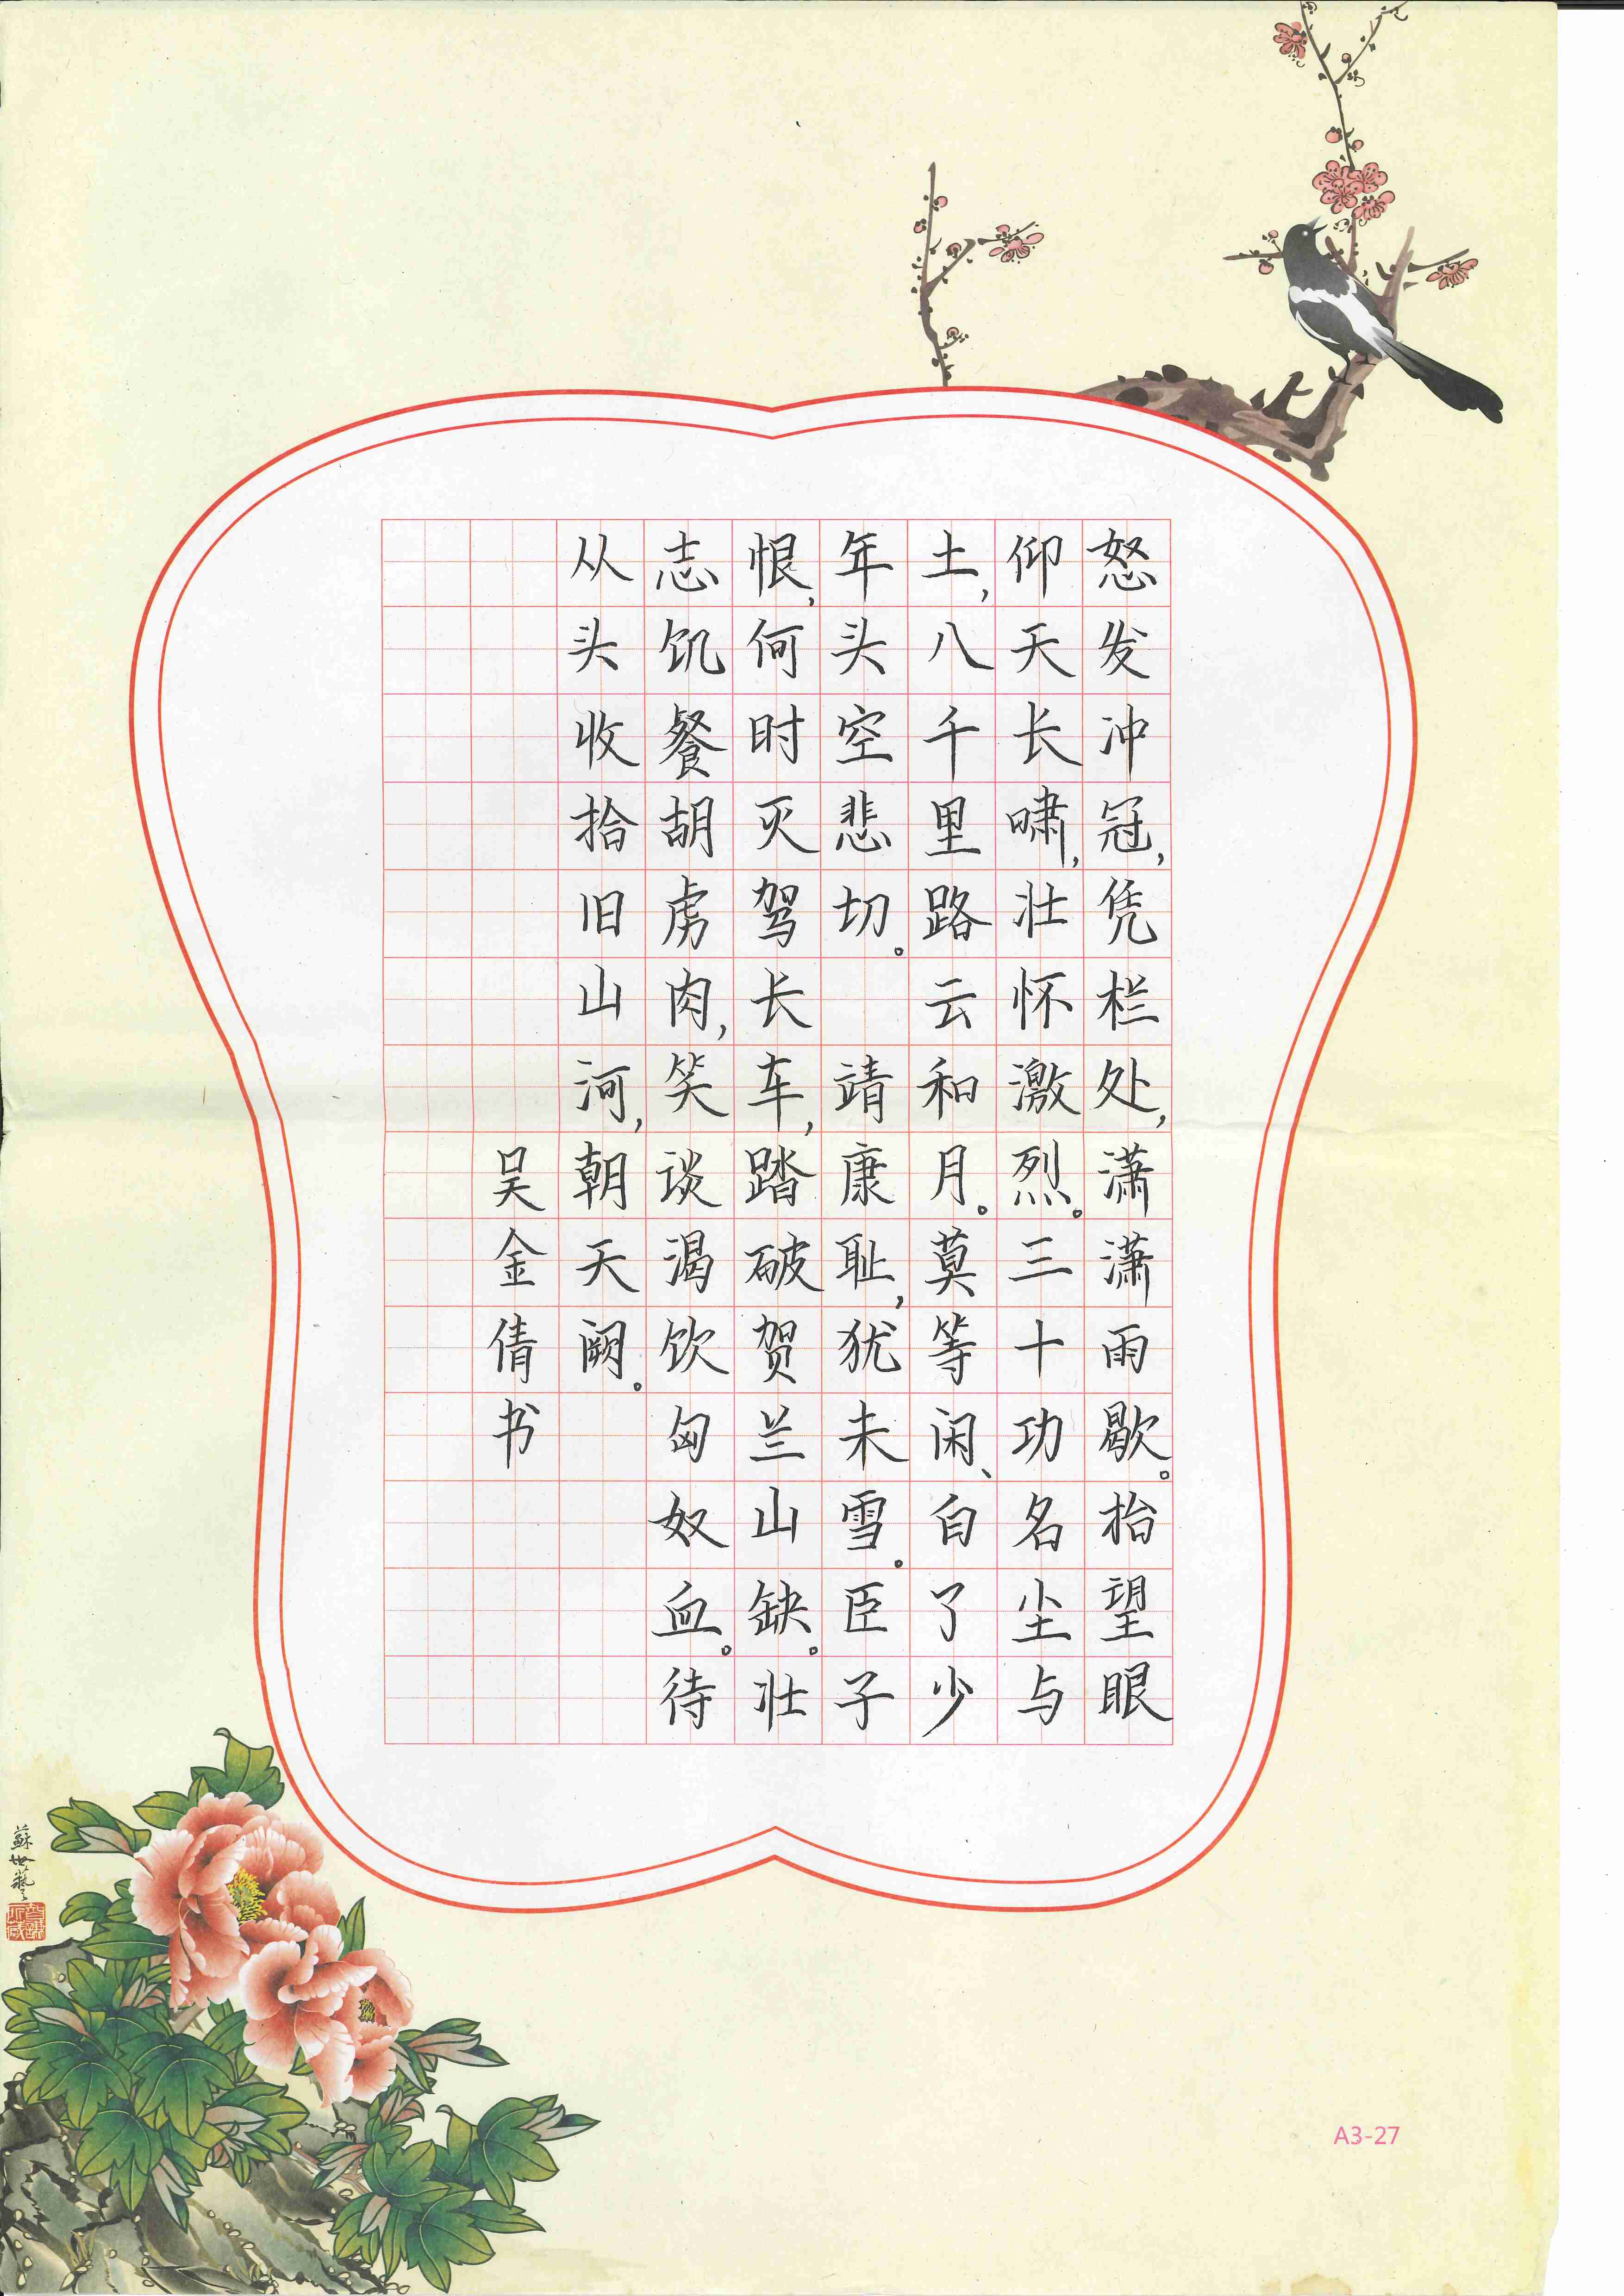 怒发冲冠,凭栏处,潇潇雨歇。抬望眼
仰天长啸,壮怀激烈。三十功名尘与
土,八千里路云和月。莫等闲、白了少
年头空悲切。 靖康耻,犹未雪。臣子
恨,何时灭驾长车,踏破贺兰山缺。壮
志饥餐胡虏肉,笑谈渴饮匈奴血。待
从头收拾旧山河,朝天阙。
吴金倩书
蘇世藝
A3-27